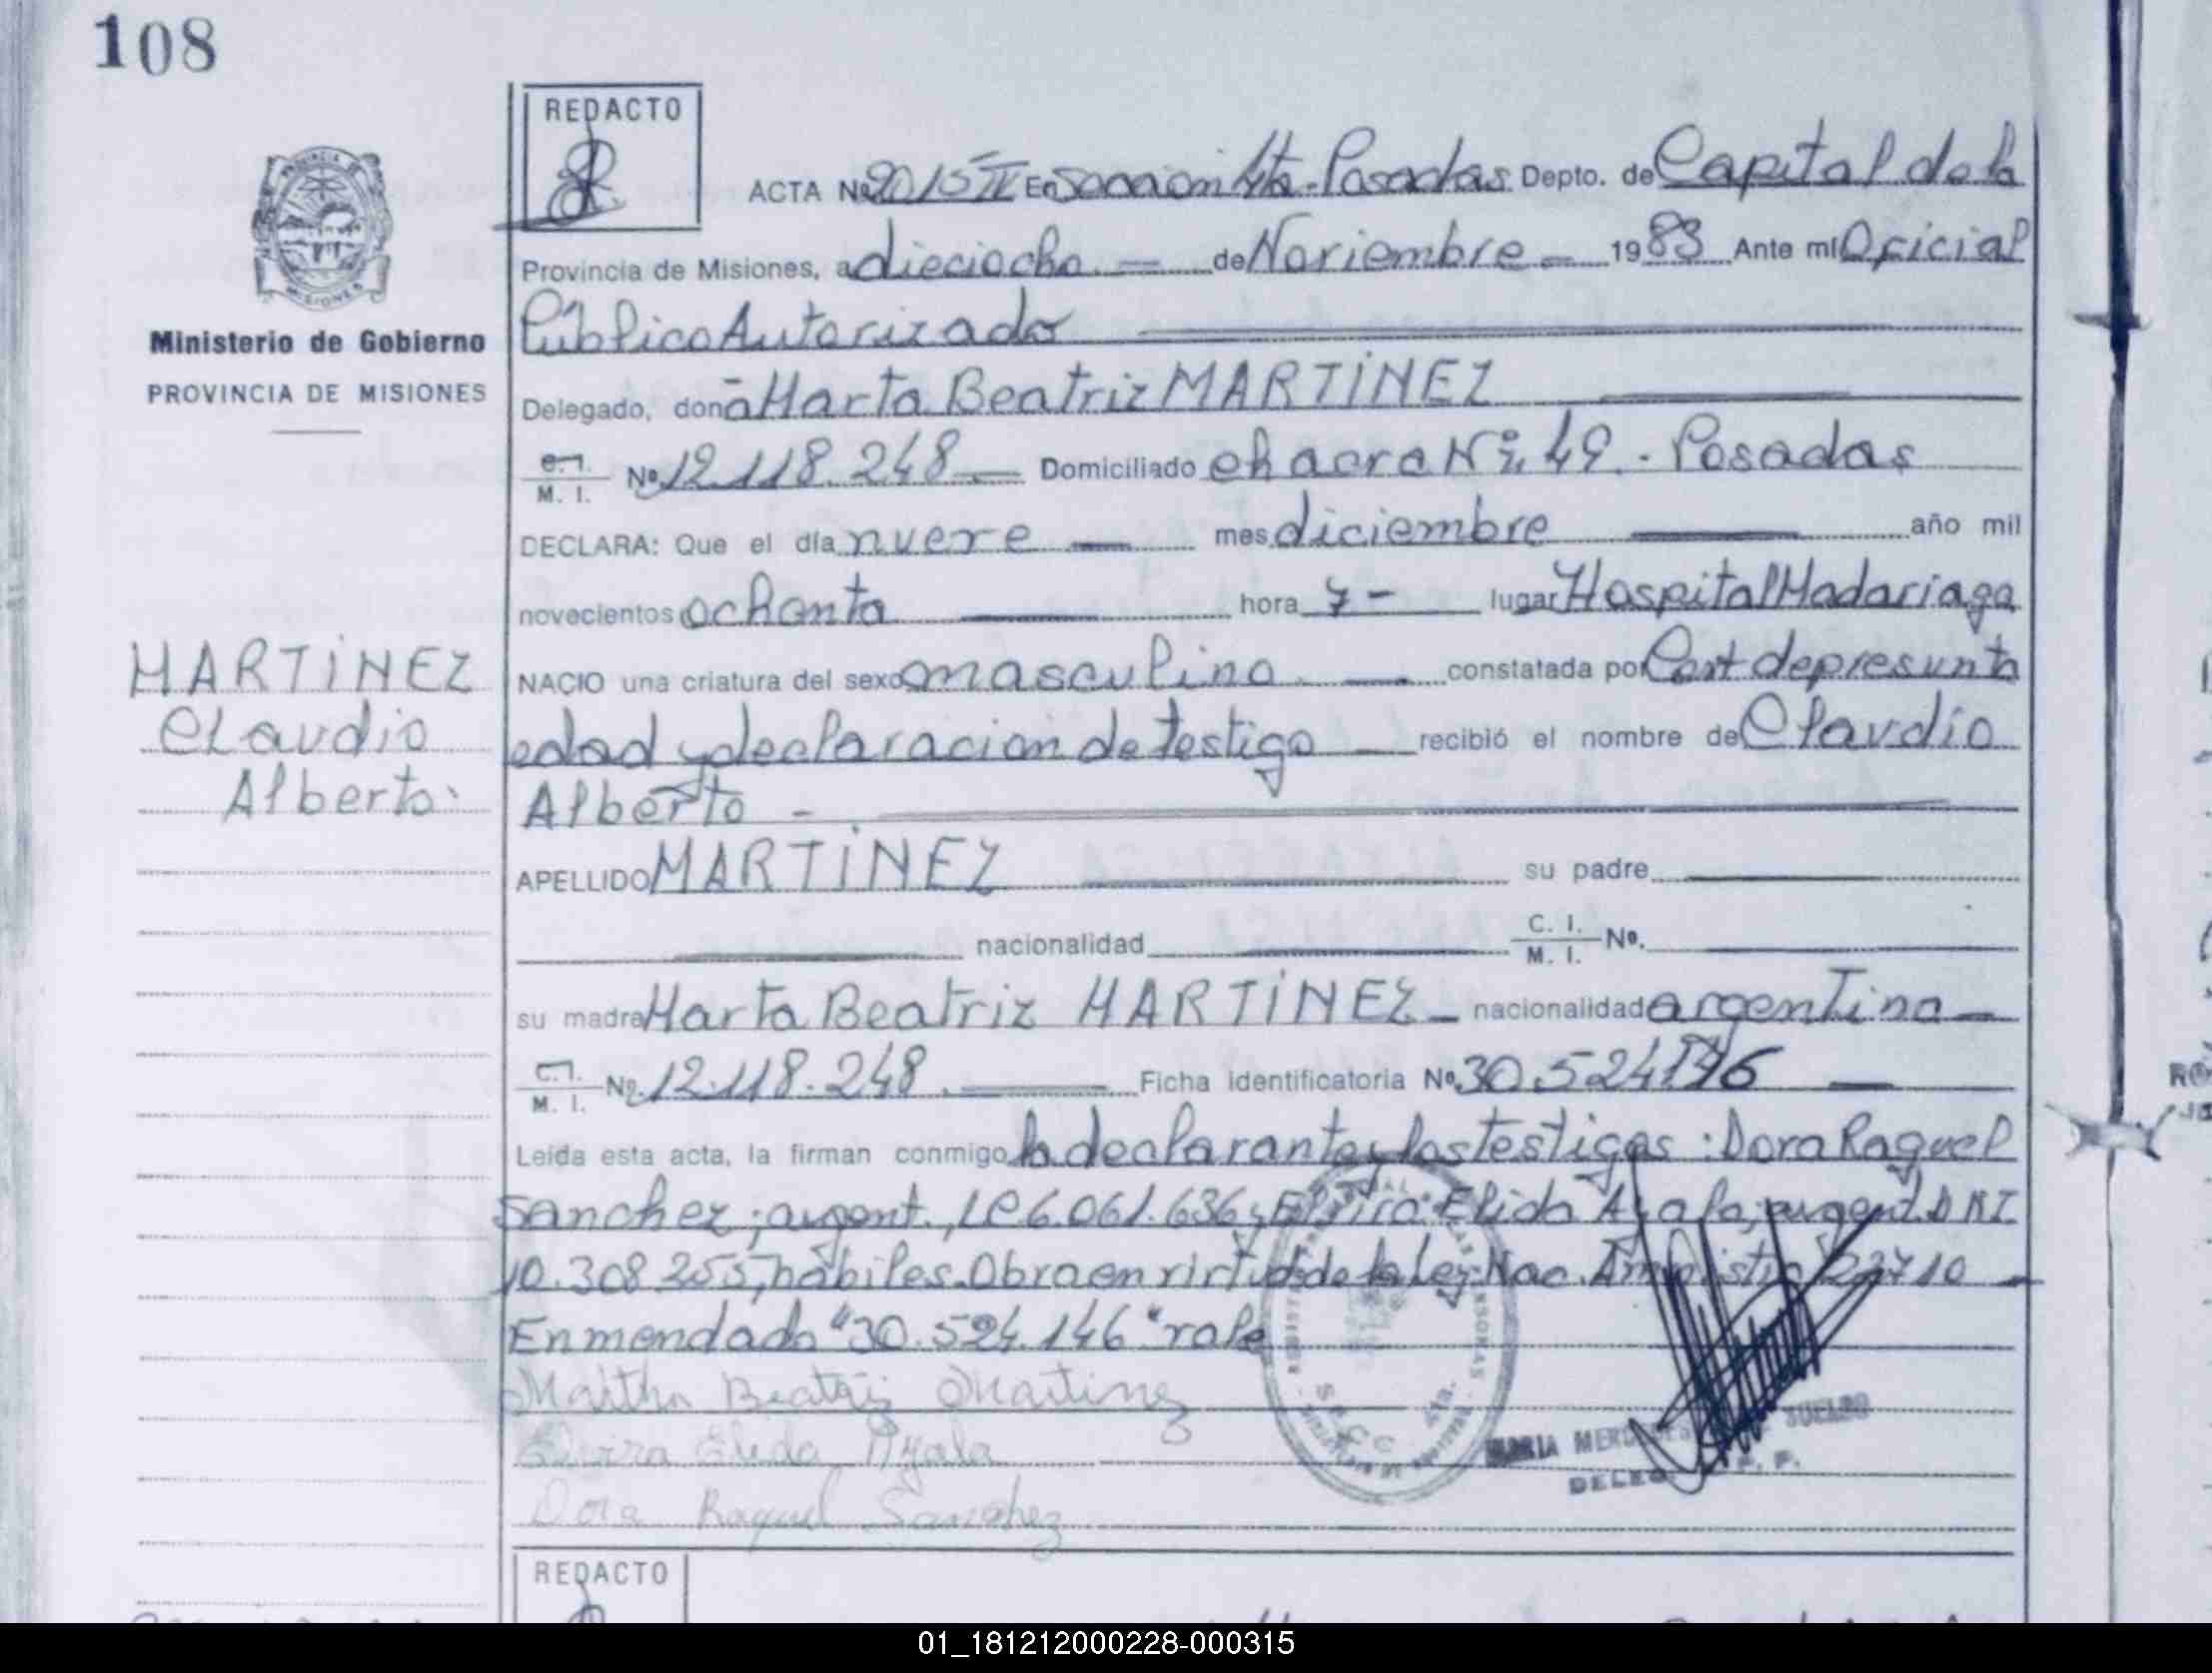 108
REDACTO
ACTA Nº 2015 II En Sección 4ta - Posadas Depto. de Capital de la
Provincia de Misiones, a dieciocho — de Noviembre — 1983 Ante mí Oficial
Público Autorizado
Ministerio de Gobierno
PROVINCIA DE MISIONES
Delegado, doña Marta Beatriz MARTINEZ
C.I. M. I. Nº 12.118.248 — Domiciliado chacra Nº 49 - Posadas
DECLARA: Que el día nueve — mes diciembre — año mil
novecientos ochenta — hora 7 - lugar Hospital Madariaga
NACIO una criatura del sexo masculino — constatada por Cert de presunta
edad y declaración de testigo — recibió el nombre de Claudio
Alberto -
MARTINEZ
Claudio
Alberto
APELLIDO MARTINEZ su padre —
— nacionalidad — C. I. M. I. Nº. —
su madre Marta Beatriz MARTINEZ — nacionalidad argentina —
C.I. M. I. Nº 12.118.248 — Ficha identificatoria Nº 30.524.146 —
Leída esta acta, la firman conmigo la declarante y los testigos: Dora Raquel
Sanchez; argent., LC 6.061.636 y Elvira Elida Ayala, argent. DNI
10.308.255, hábiles. Obra en virtud de la Ley Nac. Amnistia 22710 —
Enmendado "30.524.146" vale
Martha Beatriz Martinez
Elvira Elida Ayala
Dora Raquel Sanchez
MARIA SUELDO
REDACTO
01_181212000228-000315